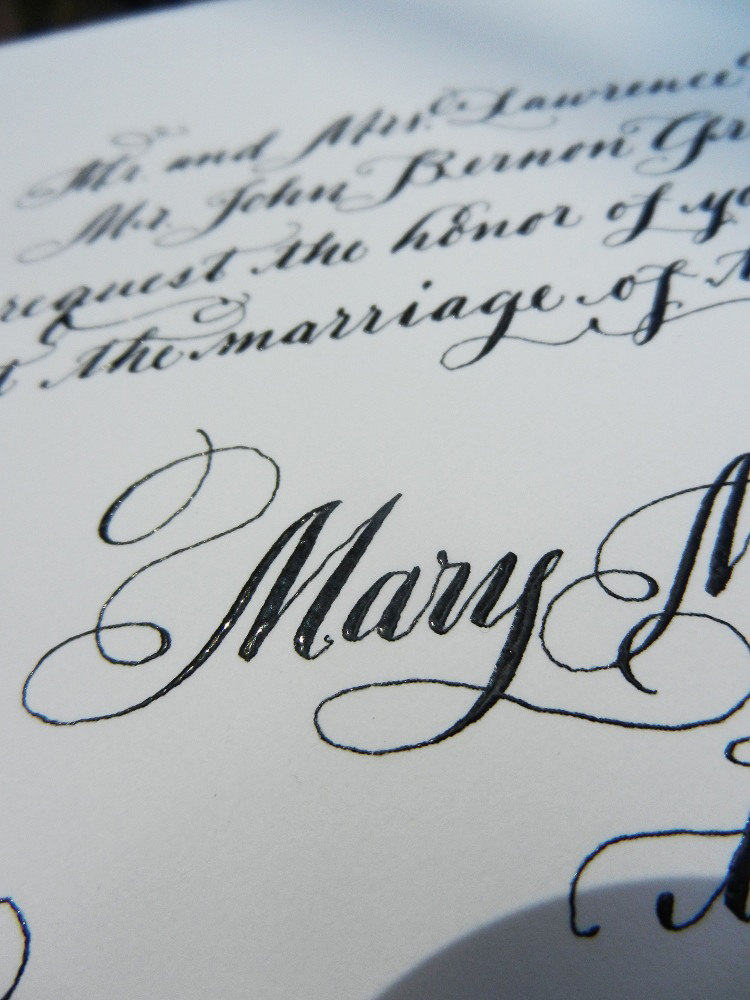 Mr. and Mrs. Lawrence
Mr. John Bernon
request the honor of
the marriage of
Mary M